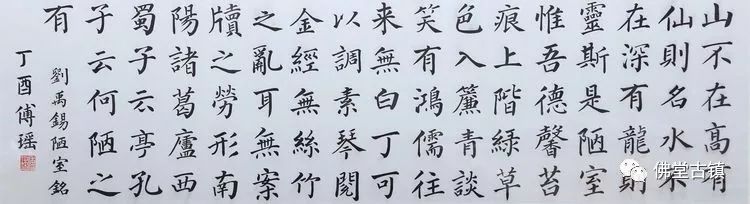 山不在高有
仙則名水不
在深有龍則
靈斯是陋室
惟吾德馨苔
痕上階綠草
色入簾青談
笑有鴻儒往
来無白丁可
以調素琴閱
金經無絲竹
之亂耳無案
牘之勞形南
陽諸葛廬西
蜀子云亭孔
子云何陋之
有
劉禹錫陋室銘
丁酉傅瑶
佛堂古镇